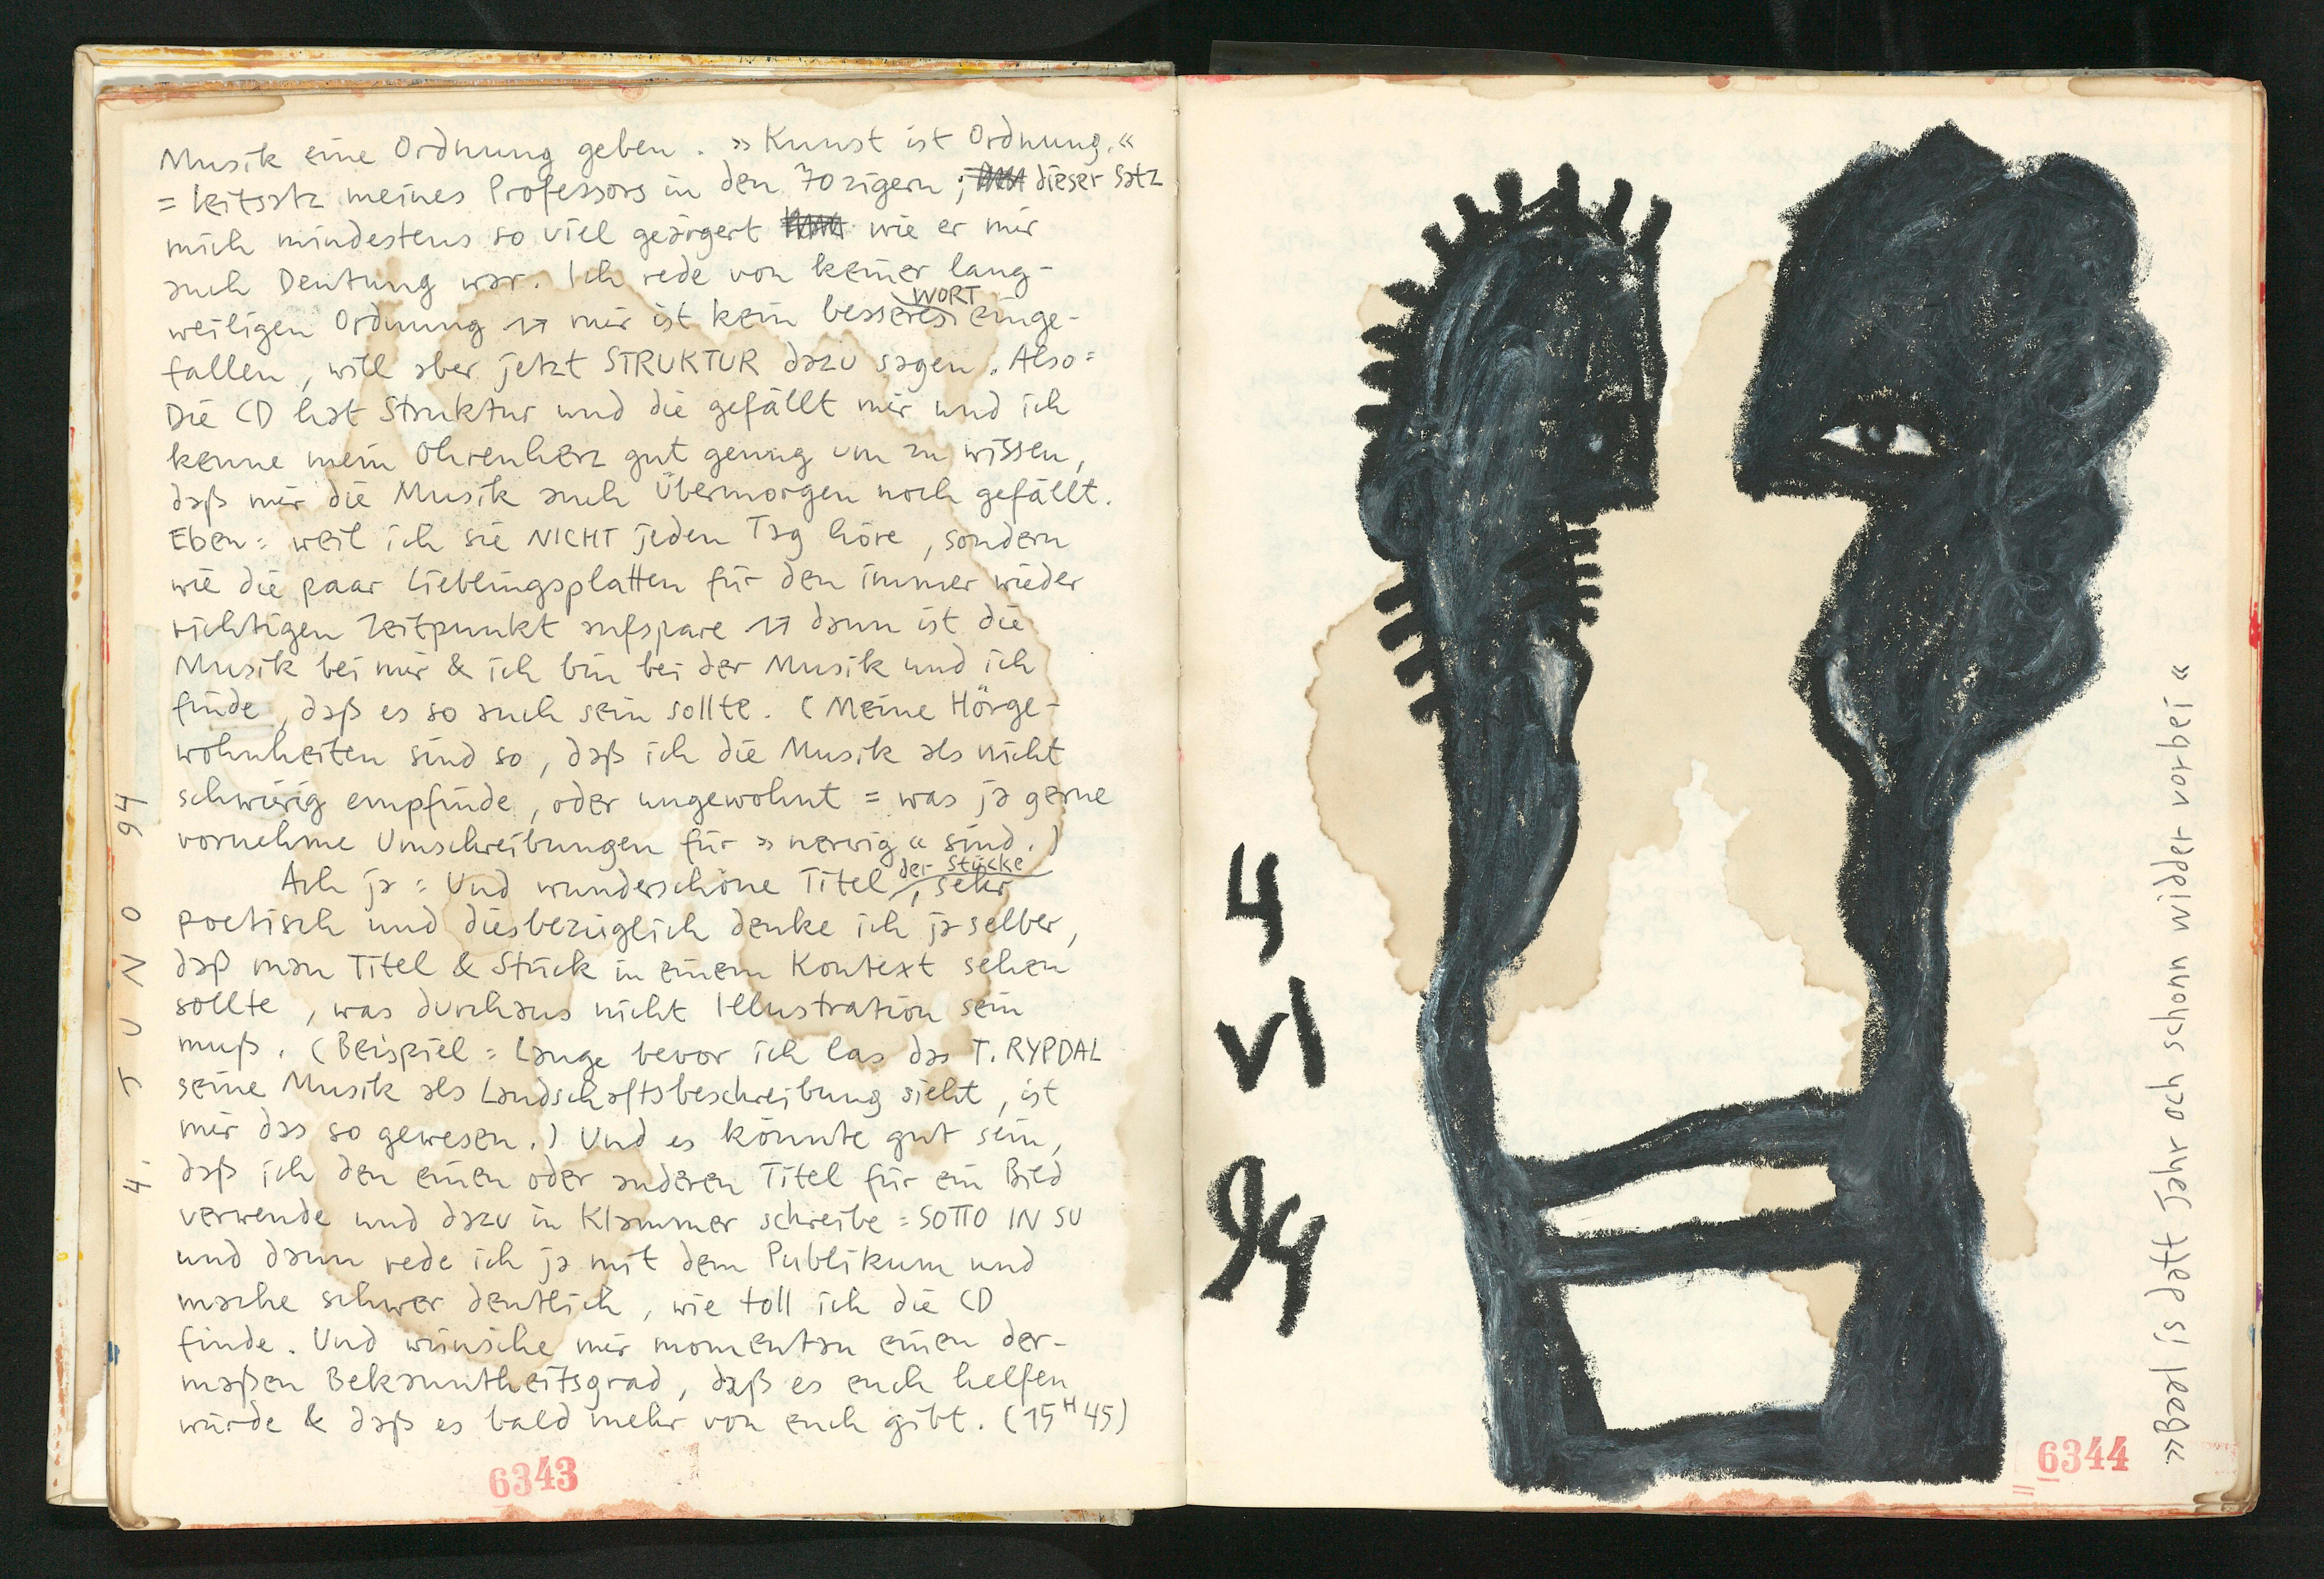 Musik eine Ordnung geben. »Kunst ist Ordnung.«
= Leitsatz meines Professors in den 70zigern; dieser Satz
mich mindestens so viel geärgert wie er mir
auch Deutung war. Ich rede von keiner lang-
weiligen Ordnung ↑↗ mir ist kein besseres WORT einge-
fallen, will aber jetzt STRUKTUR dazu sagen. Also =
Die CD hat Struktur und die gefällt mir und ich
kenne mein Ohrenherz gut genug um zu wissen,
daß mir die Musik auch Übermorgen noch gefällt.
Eben = weil ich sie NICHT jeden Tag höre, sondern
wie die paar Lieblingsplatten für den immer wieder
richtigen Zeitpunkt aufspare ↑↗ dann ist die
Musik bei mir & ich bin bei der Musik und ich
finde, daß es so auch sein sollte. (Meine Hörge-
wohnheiten sind so, daß ich die Musik als nicht
schwierig empfinde, oder ungewohnt = was ja gerne
vornehme Umschreibungen für »nervig« sind.)
Ach ja = Und wunderschöne Titel der Stücke, sehr
poetisch und diesbezüglich denke ich ja selber,
daß man Titel & Stück in einem Kontext sehen
sollte, was durchaus nicht Illustration sein
muß. (Beispiel = Lange bevor ich las das T. RYPDAL
seine Musik als Landschaftsbeschreibung sieht, ist
mir das so gewesen.) Und es könnte gut sein,
daß ich den einen oder anderen Titel für ein Bild
verwende und dazu in Klammer schreibe = SOTTO IN SU
und dann rede ich ja mit dem Publikum und
mache schwer deutlich, wie toll ich die CD
finde. Und wünsche mir momentan einen der-
maßen Bekanntheitsgrad, daß es euch helfen
würde & daß es bald mehr von euch gibt. (15H45)
4. JUNO 94
6343
4
VI
94
»Baal is datt Jahr och schonn widder vorbei«
6344